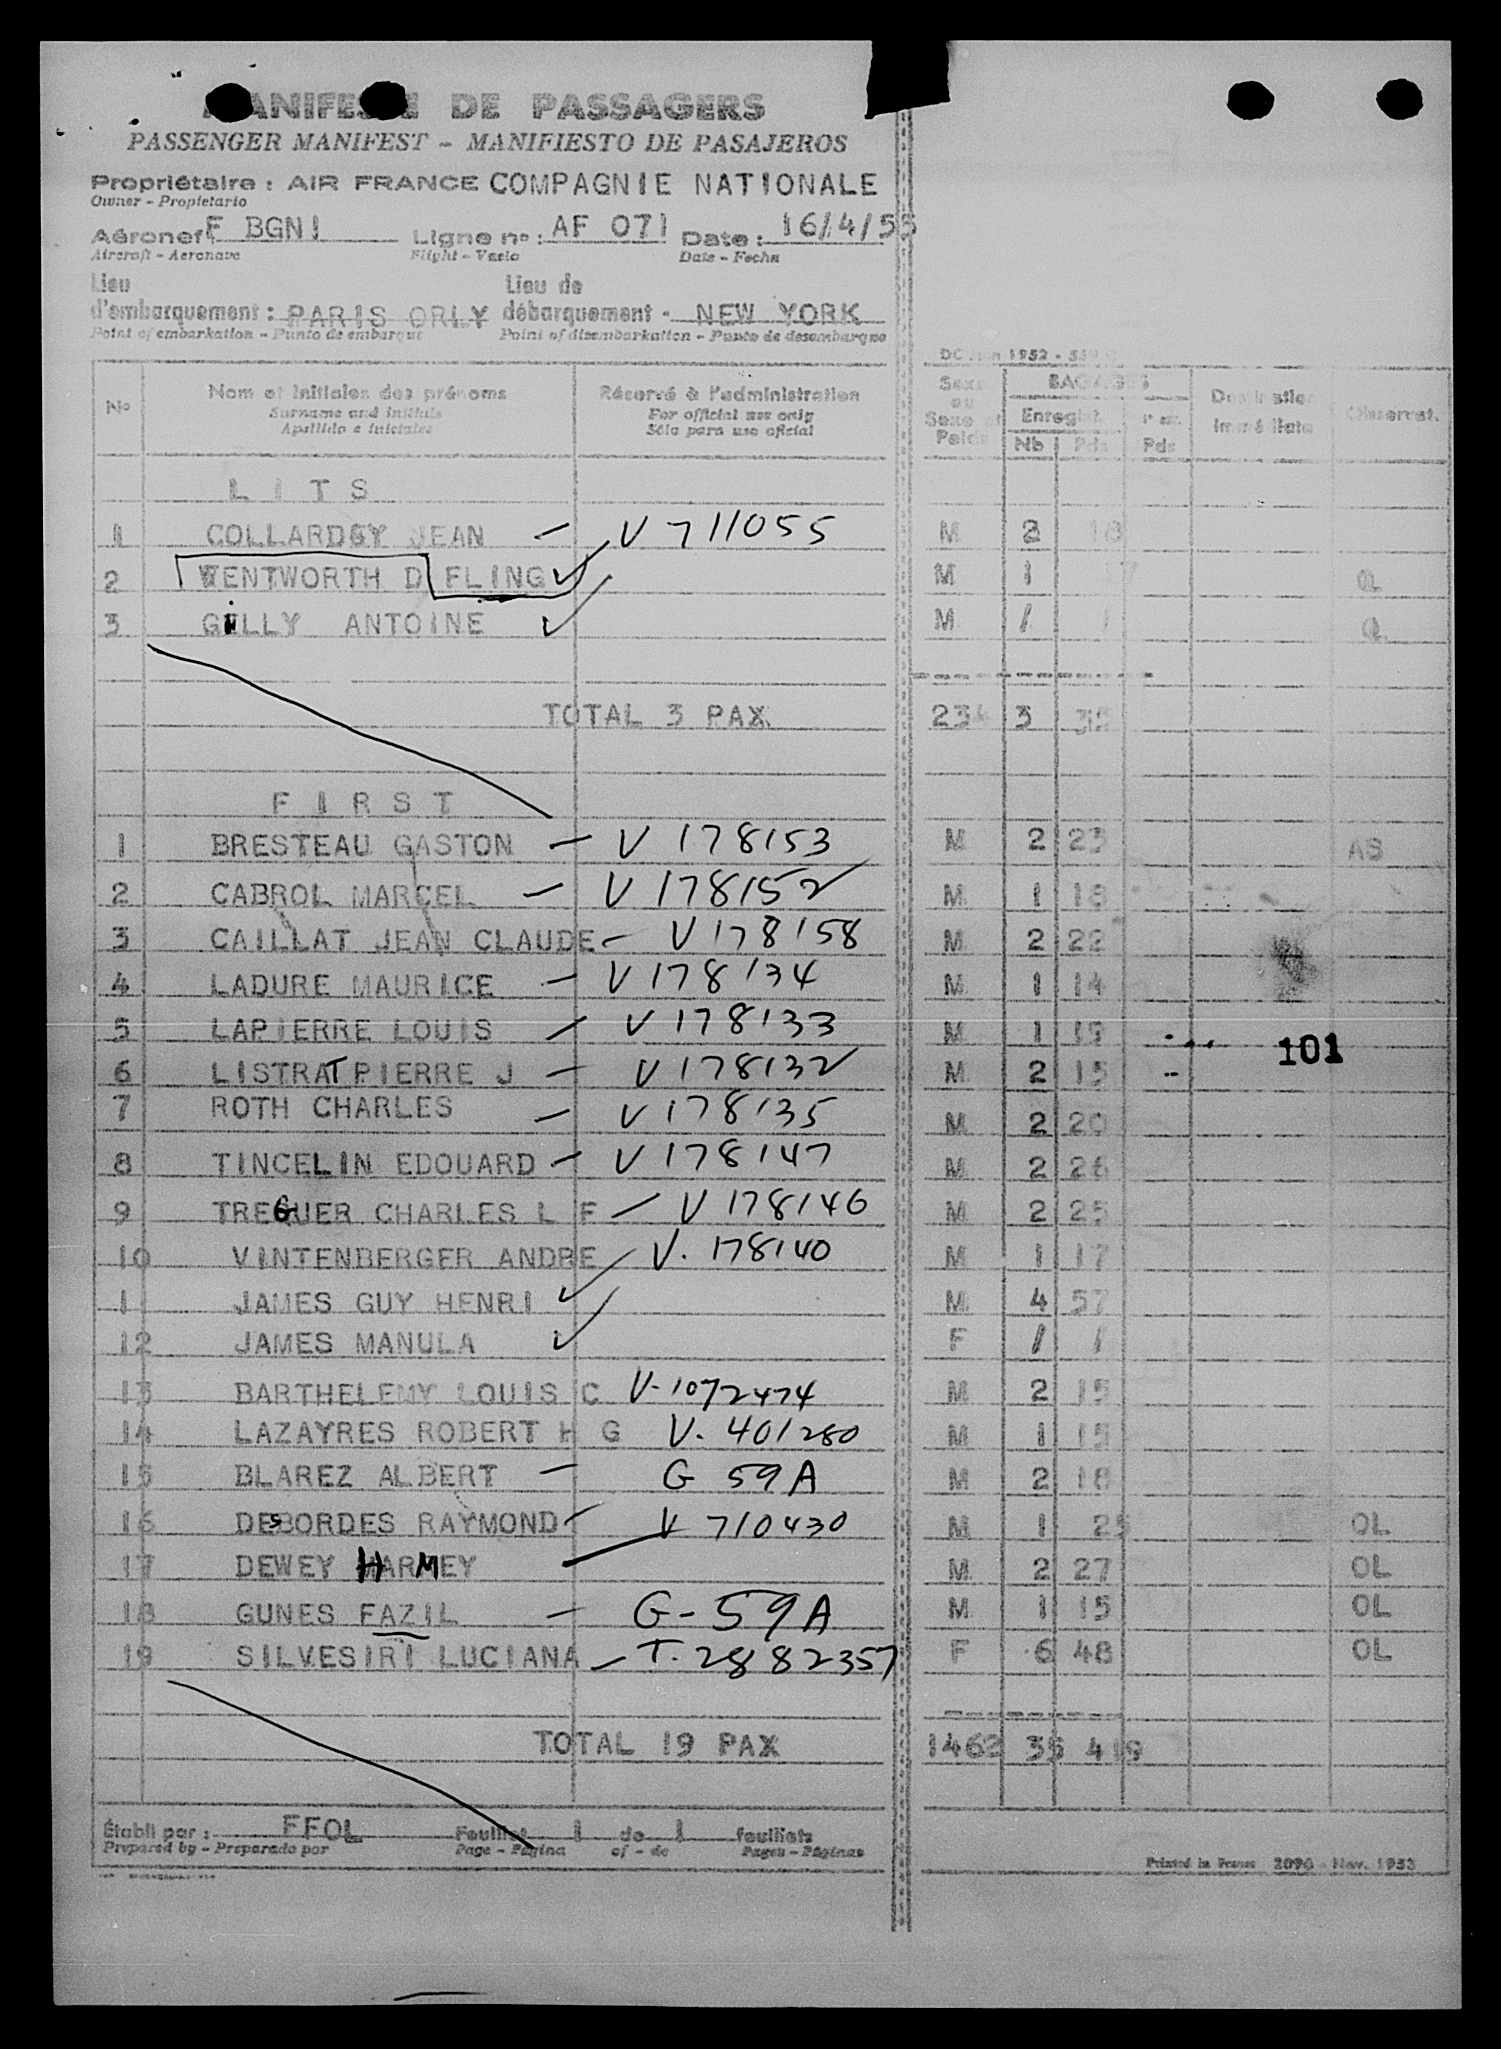 MANIFESTE DE PASSAGERS
PASSENGER MANIFEST - MANIFIESTO DE PASAJEROS
Propriétaire : AIR FRANCE COMPAGNIE NATIONALE
Owner - Propietario
Aéronef : F BGNI Ligne nº : AF 071 Date : 16/4/55
Aircraft - Aeronave Flight - Vuelo Date - Fecha
Lieu Lieu de
d'embarquement : PARIS ORLY débarquement - NEW YORK
Point of embarkation - Punto de embarque Point of disembarkation - Punto de desembarque
Nº Nom et initiales des prénoms Réservé à l'administration Sexe BAGAGES Destination Observat.
Surname and initials For official use only ou Enregist. immédiate
Apellido e iniciales Sólo para uso oficial Nb Pds Pds
L I T S
1 COLLARDEY JEAN - V 711055 M 2 18
2 WENTWORTH D FLING M 1 17
3 GILLY ANTOINE M / /
TOTAL 3 PAX 234 3 35
F I R S T
1 BRESTEAU GASTON - V 178153 M 2 23 AS
2 CABROL MARCEL - V 178152 M 1 18
3 CAILLAT JEAN CLAUDE - V 178158 M 2 22
4 LADURE MAURICE - V 178134 M 1 14
5 LAPIERRE LOUIS - V 178133 M 1 19
101
6 LISTRAT PIERRE J - V 178132 M 2 15
7 ROTH CHARLES - V 178135 M 2 20
8 TINCELIN EDOUARD - V 178147 M 2 26
9 TREGUER CHARLES L F - V 178146 M 2 25
10 VINTENBERGER ANDRE V. 178140 M 1 17
1 JAMES GUY HENRI M 4 57
12 JAMES MANULA F / /
13 BARTHELEMY LOUIS C V-1072474 M 2 15
14 LAZAYRES ROBERT H G V. 401280 M 1 15
15 BLAREZ ALBERT - G 59A M 2 18
16 DESBORDES RAYMOND - V 710430 M 1 25 OL
17 DEWEY HARMEY M 2 27 OL
18 GUNES FAZIL - G-59A M 1 15 OL
19 SILVESIRI LUCIANA - T. 2882357 F 6 48 OL
TOTAL 19 PAX 1462 35 419
Établi par : FFOL Feuillet 1 de 1 feuillets
Prepared by - Preparado por Page - Página of - de Pages - Páginas
Printed in France 2090 - Nov. 1953